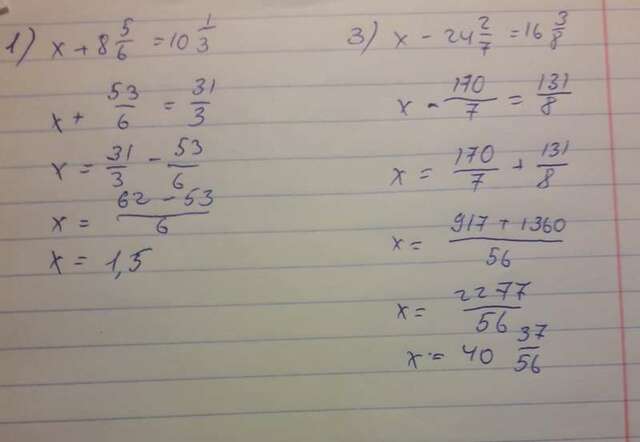 1) x + 8 5/6 = 10 1/3
x + 53/6 = 31/3
x = 31/3 - 53/6
x = 62 - 53/6
x = 1,5
3) x - 24 2/7 = 16 3/8
x - 170/7 = 131/8
x = 170/7 + 131/8
x = 917 + 1360/56
x = 2277/56
x = 40 37/56